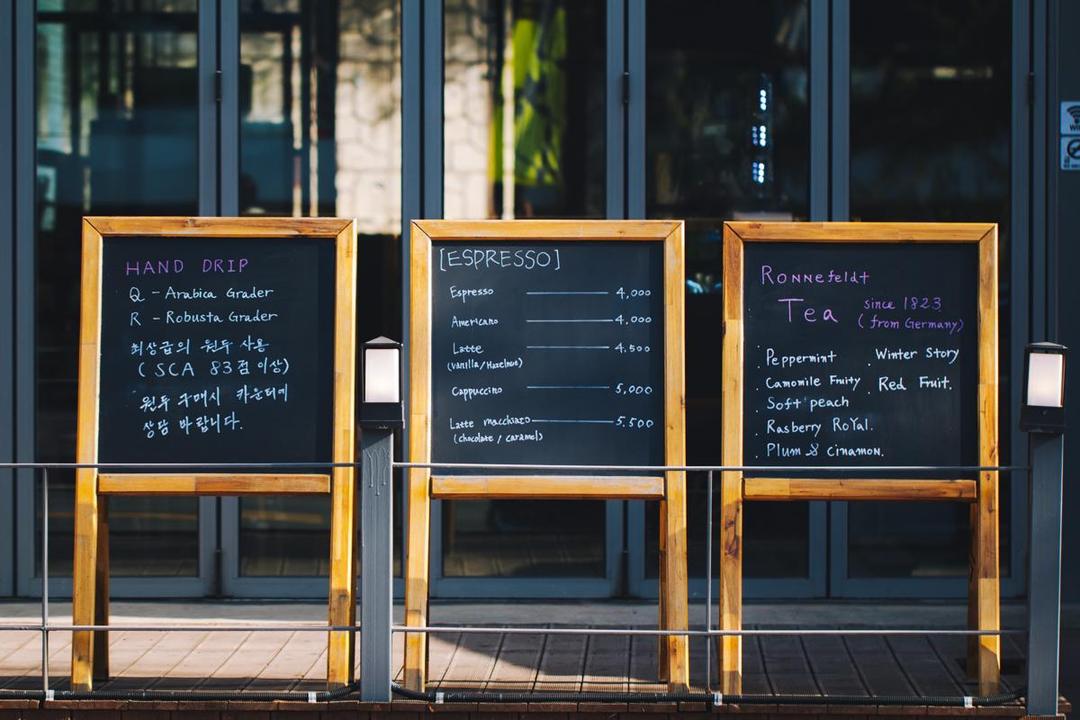 HAND DRIP
Q - Arabica Grader
R - Robusta Grader
최상급의 원두 사용
( SCA 83점 이상)
원두 구매시 카운터에
상담 바랍니다.
[ESPRESSO]
Espresso 4,000
Americano 4,000
Latte 4,500
(Vanilla/Hazelnut)
Cappuccino 5,000
Latte macchiato 5,500
(chocolate / caramel)
Ronnefeldt
Tea since 1823
( from Germany)
. Peppermint . Winter Story
. Camomile Fruity . Red Fruit.
. Soft peach
. Rasberry Royal.
. Plum & Cinamon.